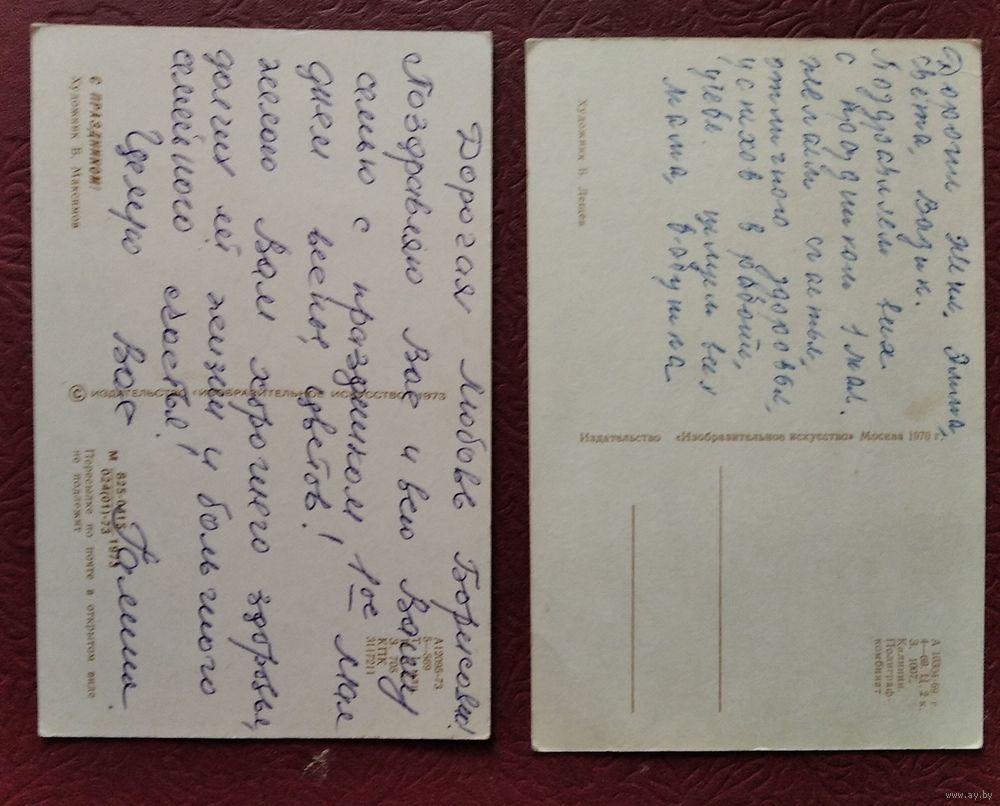 Дорогая Любовь Борисовна!
Поздравляю Вас и всю Вашу
семью с праздником 1ое Мая
днем весны, цветов!
желаю Вам хорошего здоровья,
долгих лет жизни и большого
семейного счастья!
Целую Вас Галина.
С ПРАЗДНИКОМ!
Художник В. Максимов
© ИЗДАТЕЛЬСТВО «ИЗОБРАЗИТЕЛЬНОЕ ИСКУССТВО» 1973
А12095-73
5—569
З. 705
КПК
3117211
М 825-0415
024(01)-73 1973
Пересылке по почте в открытом виде
не подлежит
Дорогие Эмма,
света, Вадик.
Поздравляем вас
с праздником 1 мая.
желаем счастья,
отличного здоровья,
успехов в работе,
учебе. целуем вас
мама, бабушка
Художник В. Лещев
Издательство «Изобразительное искусство» Москва 1970 г.
А 10304-69 г.
4—69. Ц. 2 к.
З. 1007.
Калинин.
Полиграф-
комбинат
www.ay.by